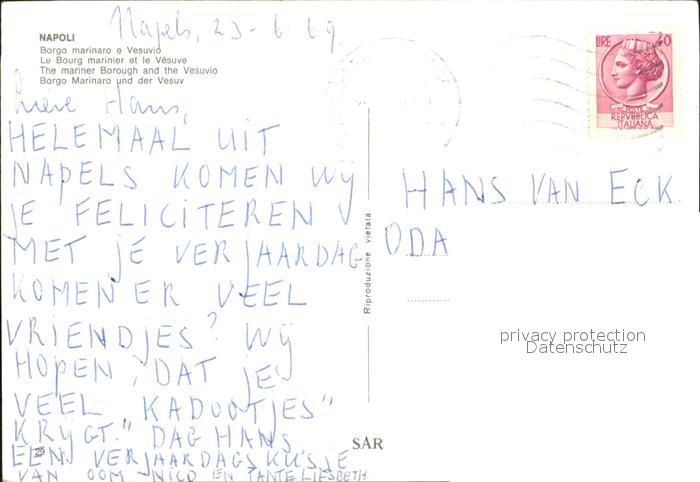 Napels, 23-6-69.
NAPOLI
Borgo marinaro e Vesuvio
Le Bourg marinier et le Vésuve
The mariner Borough and the Vesuvio
Borgo Marinaro und der Vesuv
Lieve Hans,
HELEMAAL UIT
NAPELS KOMEN WIJ
JE FELICITEREN
MET JE VERJAARDAG
KOMEN ER VEEL
VRIENDJES? WIJ
HOPEN, DAT JE
VEEL KADOOTJES"
KRIJGT." DAG HANS
EEN VERJAARDAGSKUSJE
VAN OOM NICO EN TANTE LIESBETH
Riproduzione vietata
SAR
LIRE 40
POSTE
REPVBBLICA
ITALIANA
HANS VAN ECK
ODA
privacy protection
Datenschutz